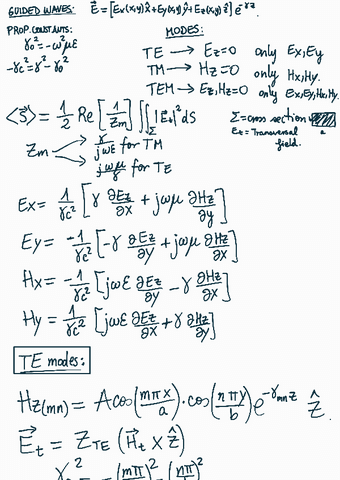 GUIDED WAVES: E⃗ = [Ex(x,y)x̂ + Ey(x,y)ŷ + Ez(x,y)ẑ] e^-γz
PROP. CONSTANTS:
γo² = -ω²με
-γc² = γ² - γo²
MODES:
TE → Ez=0 only Ex,Ey
TM → Hz=0 only Hx,Hy.
TEM → Ez,Hz=0 only Ex,Ey,Hx,Hy.
<S⃗> = 1/2 Re [1/Zm] ∬_Σ |Et|² dS
Σ=cross section
a
Et = Transversal field.
Zm → γ/jωε for TM
→ jωμ/γ for TE
Ex = 1/γc² [γ ∂Ez/∂x + jωμ ∂Hz/∂y]
Ey = -1/γc² [-γ ∂Ez/∂y + jωμ ∂Hz/∂x]
Hx = -1/γc² [jωε ∂Ez/∂y - γ ∂Hz/∂x]
Hy = 1/γc² [jωε ∂Ez/∂x + γ ∂Hz/∂y]
TE modes:
Hz(mn) = A cos(mπx/a) · cos(nπy/b) e^-γmn z ẑ
E⃗t = Z_TE (H⃗t × ẑ)
γc² = -(mπ/a)² - (nπ/b)²